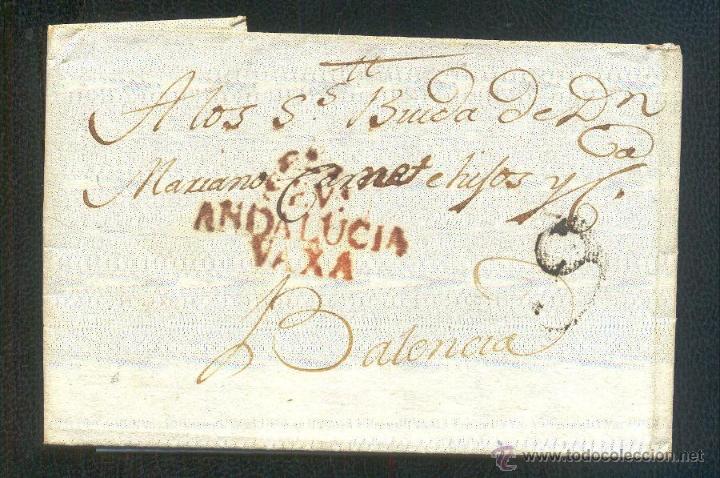 A los S.s Biuda de Dn
Mariano Carnet e hijos y C.a
ANDALUCIA
VAXA
Balencia
www.todocoleccion.net